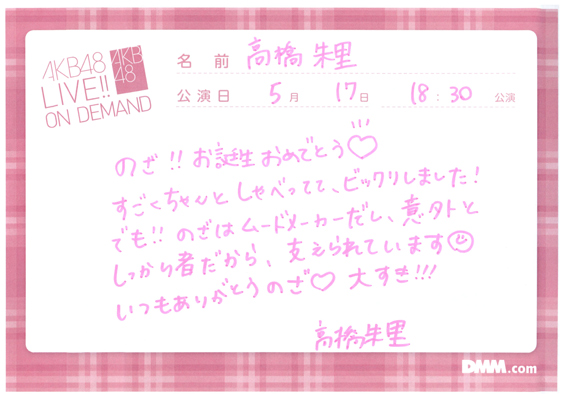 AKB48
LIVE!!
ON DEMAND
AKB
48
名前 高橋朱里
公演日 5月 17日 18:30 公演
のざ!!お誕生おめでとう♡
すごくちゃんとしゃべってて、ビックリしました!
でも!!のざはムードメーカーだし、意外と
しっかり者だから、支えられています☺
いつもありがとうのざ♡大すき!!!
高橋朱里
DMM.com